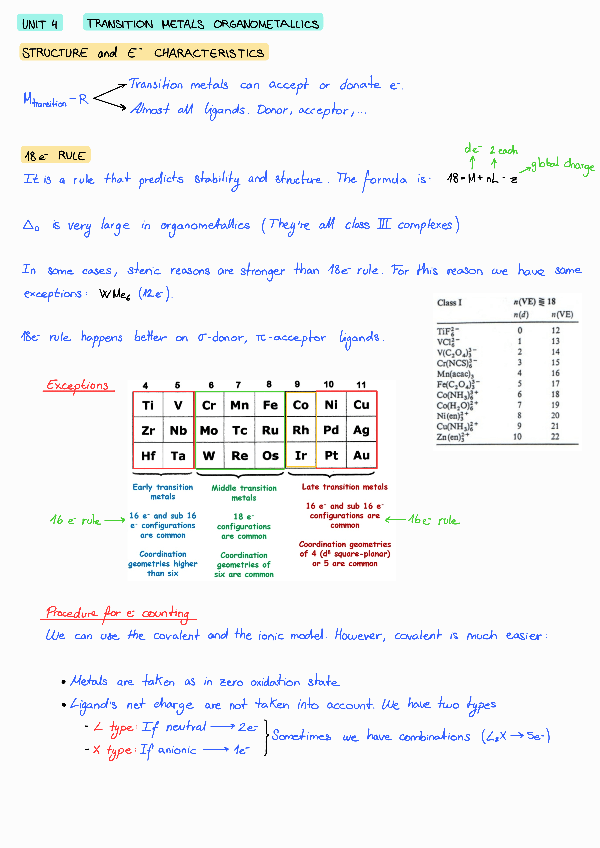 UNIT 4 TRANSITION METALS ORGANOMETALLICS
STRUCTURE and E⁻ CHARACTERISTICS
Mtransition - R
Transition metals can accept or donate e⁻.
Almost all ligands. Donor, acceptor,...
18e⁻ RULE
de⁻ 2 each
global charge
It is a rule that predicts stability and structure. The formula is: 18=M+nL-z
Δo is very large in organometallics (They're all class III complexes)
In some cases, steric reasons are stronger than 18e⁻ rule. For this reason we have some
exceptions: WMe6 (12e⁻).
18e⁻ rule happens better on σ-donor, π-acceptor ligands.
Class I n(VE) ≶ 18
n(d) n(VE)
TiF6²⁻ 0 12
VCl6²⁻ 1 13
V(C2O4)3³⁻ 2 14
Cr(NCS)6³⁻ 3 15
Mn(acac)3 4 16
Fe(C2O4)3³⁻ 5 17
Co(NH3)6³⁺ 6 18
Co(H2O)6²⁺ 7 19
Ni(en)3²⁺ 8 20
Cu(NH3)6²⁺ 9 21
Zn(en)3²⁺ 10 22
Exceptions
4 5 6 7 8 9 10 11
Ti V Cr Mn Fe Co Ni Cu
Zr Nb Mo Tc Ru Rh Pd Ag
Hf Ta W Re Os Ir Pt Au
Early transition
metals
16 e⁻ and sub 16
e⁻ configurations
are common
Coordination
geometries higher
than six
Middle transition
metals
18 e⁻
configurations
are common
Coordination
geometries of
six are common
Late transition metals
16 e⁻ and sub 16 e⁻
configurations are
common
Coordination geometries
of 4 (d⁸ square-planar)
or 5 are common
16 e⁻ rule
16e⁻ rule
Procedure for e⁻ counting
We can use the covalent and the ionic model. However, covalent is much easier:
• Metals are taken as in zero oxidation state
• Ligand's net charge are not taken into account. We have two types
- L type: If neutral → 2e⁻
- X type: If anionic → 1e⁻
Sometimes we have combinations (L2X → 5e⁻)